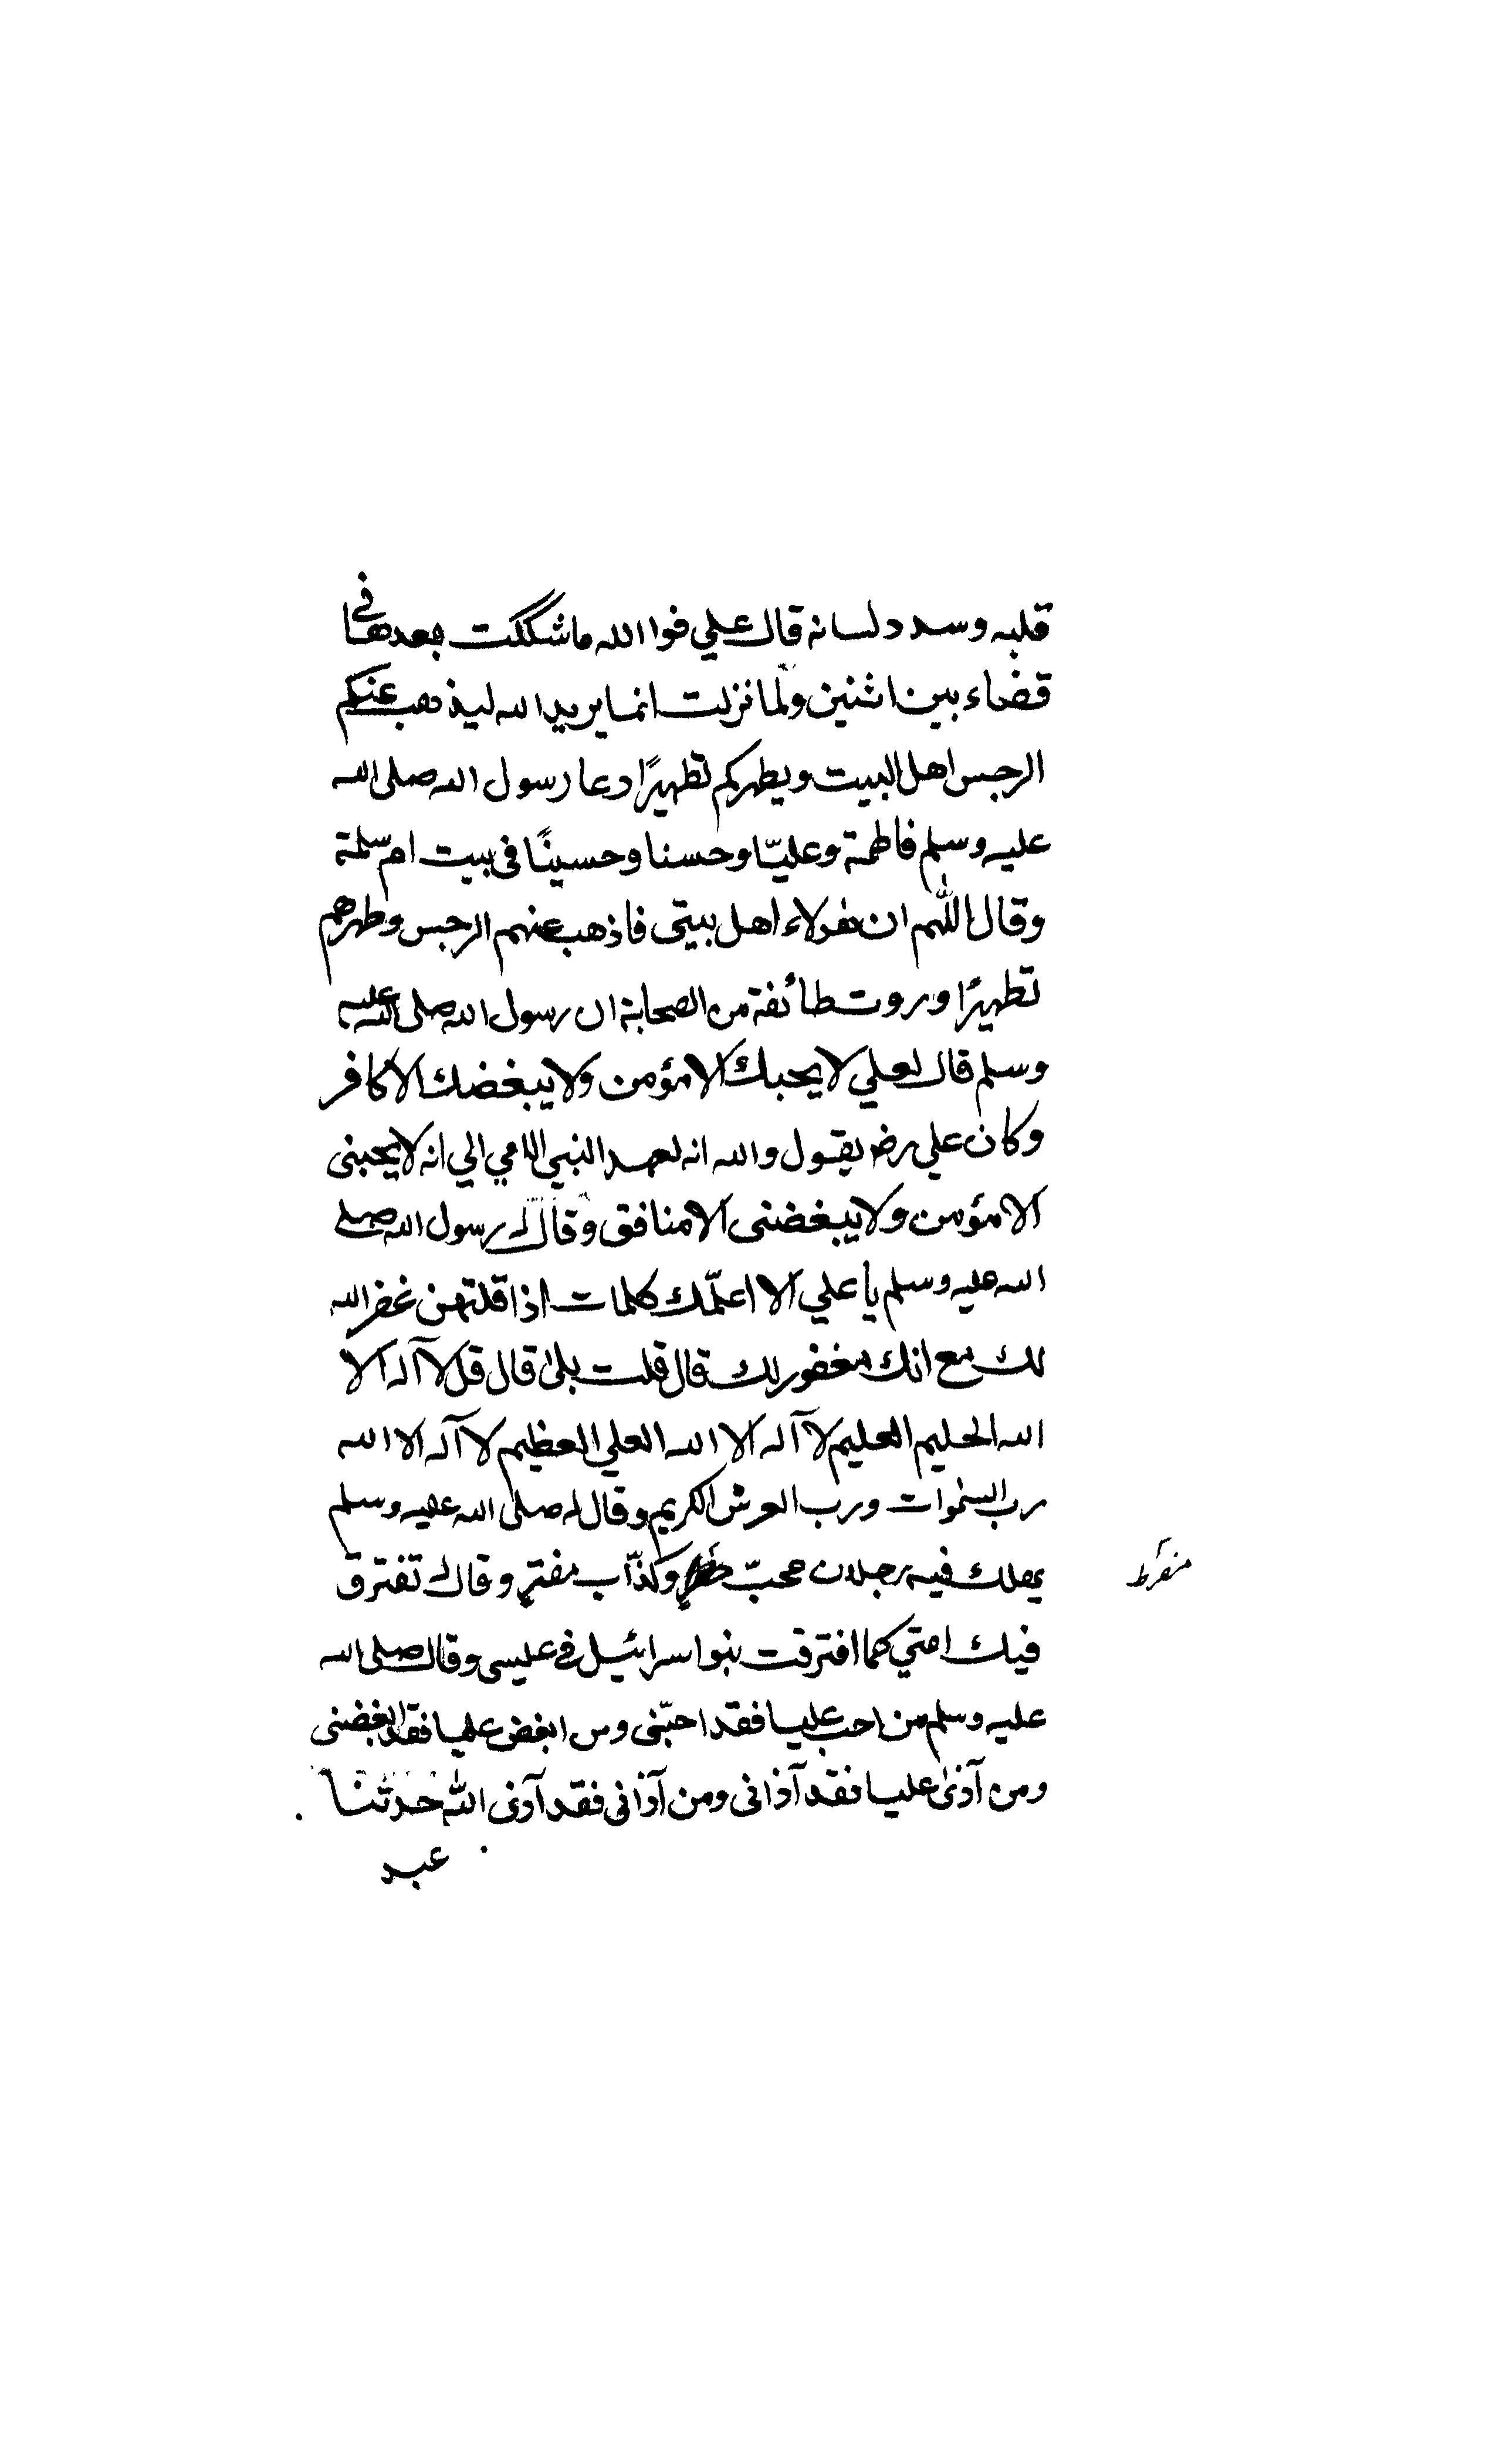 قلبه وسدد لسانه قال علي فوا الله ما شككت بعدها فى
قضاء بين اثنين ولما نزلت انما يريد الله ليذهب عنكم
الرجس اهل البيت ويطهركم تطهيرًا دعا رسول الله صلى الله
عليه وسلم فاطمة وعليّا وحسنا وحسينًا فى بيت ام سلمة
وقال اللهم ان هولاء اهل بيتى فاذهب عنهم الرجس وطهرهم
تطهيرًا وروت طائفة من الصحابة ان رسول الله صلى الله عليه
وسلم قال لعلي لا يحبك الا مؤمن ولا يبغضك الا كافر
وكان علي رضـ يقول والله انه لعهد النبي الامي الي انه لا يحبنى
الا مؤمن ولا يبغضنى الا منافق وقال له رسول الله صلى
الله عليه وسلم يا علي الا اعلّمك كلمات اذا قلتهن غفر الله
لك مع انك مغفور لك قال قلت بلى قال قل لا آله الا
الله الحليم العليم لا آله الا الله العلي العظيم لا آله الا الله
رب السموات ورب العرش الكريم وقال له صلى الله عليه وسلم
يهلك فيه رجلان محبّ وكذّاب مفتر وقال تفترق
مفرط
فيك امتي كما افترقت بنوا سرائيل في عيسى وقال صلى الله
عليه وسلم من احب عليا فقد احبّنى ومن ابغض عليا فقد ابغضنى
ومن آذى عليا فقد آذانى ومن آذانى فقد آذى الله حدثنا
عبد